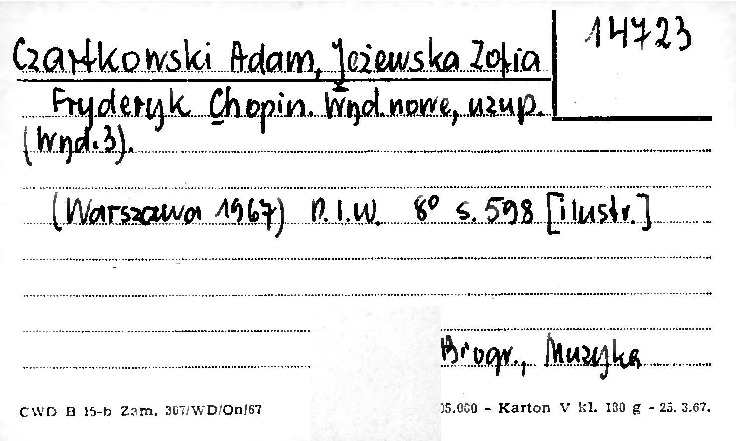 14723
Czartkowski Adam, Jeżewska Zofia
Fryderyk Chopin. Wyd. nowe, uzup.
(Wyd. 3).
(Warszawa 1967) P.I.W. 8° s. 598 [ilustr.]
Biogr., Muzyka
CWD B 15-b Zam. 307/WD/On/67
05.000 - Karton V kl. 180 g - 25. 3.67.